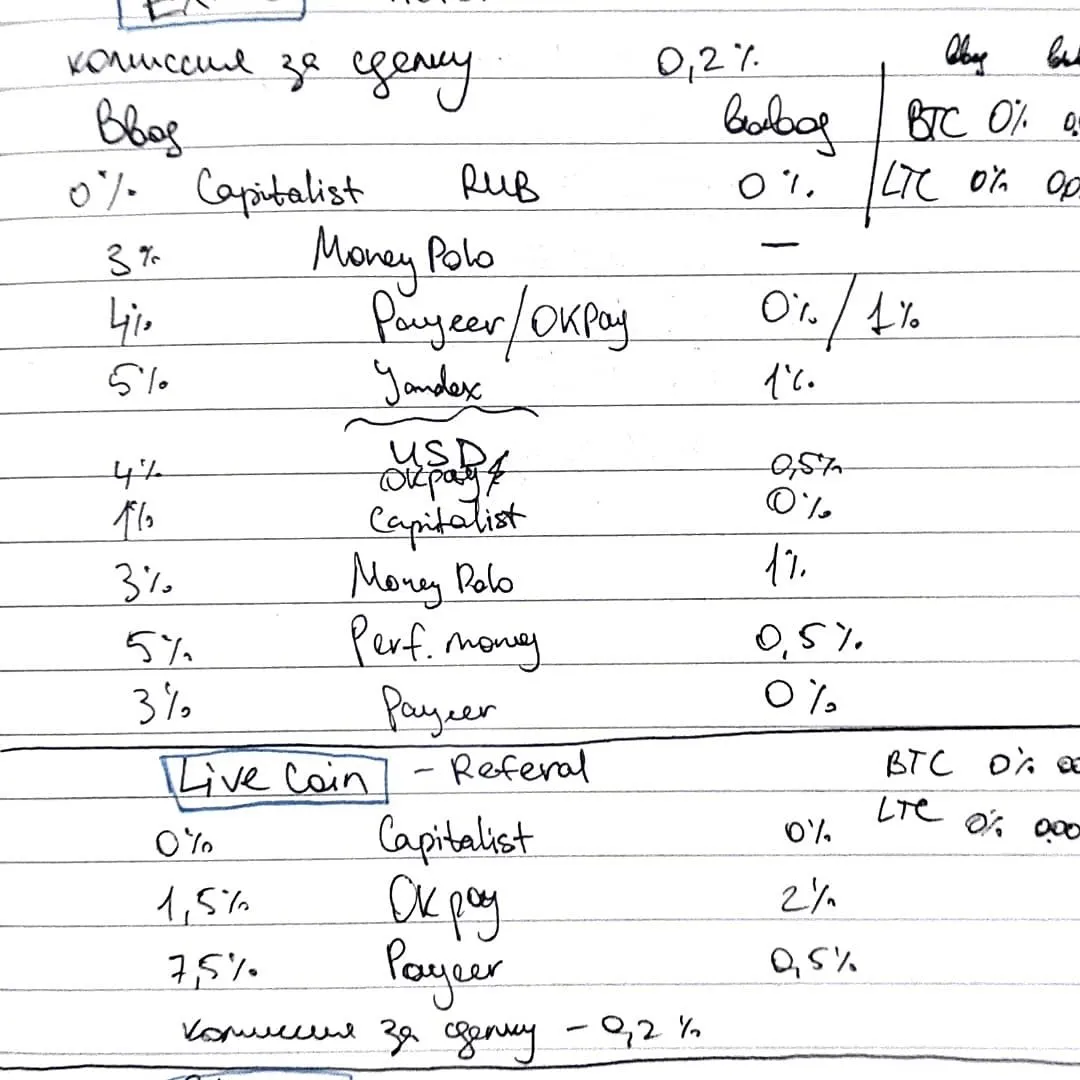 комиссия за сделку 0,2% ввод
Ввод вывод BTC 0%
0% Capitalist RUB 0% LTC 0%
3% Money Polo —
4% Payeer/OKPay 0%/1%
5% Yandex 1%
USD
4% OKpay 0,5%
1% Capitalist 0%
3% Money Polo 1%
5% Perf. money 0,5%
3% Payeer 0%
Live Coin - Referal BTC 0%
LTC 0%
0% Capitalist 0%
1,5% OKpay 2%
7,5% Payeer 0,5%
комиссия за сделку - 0,2%